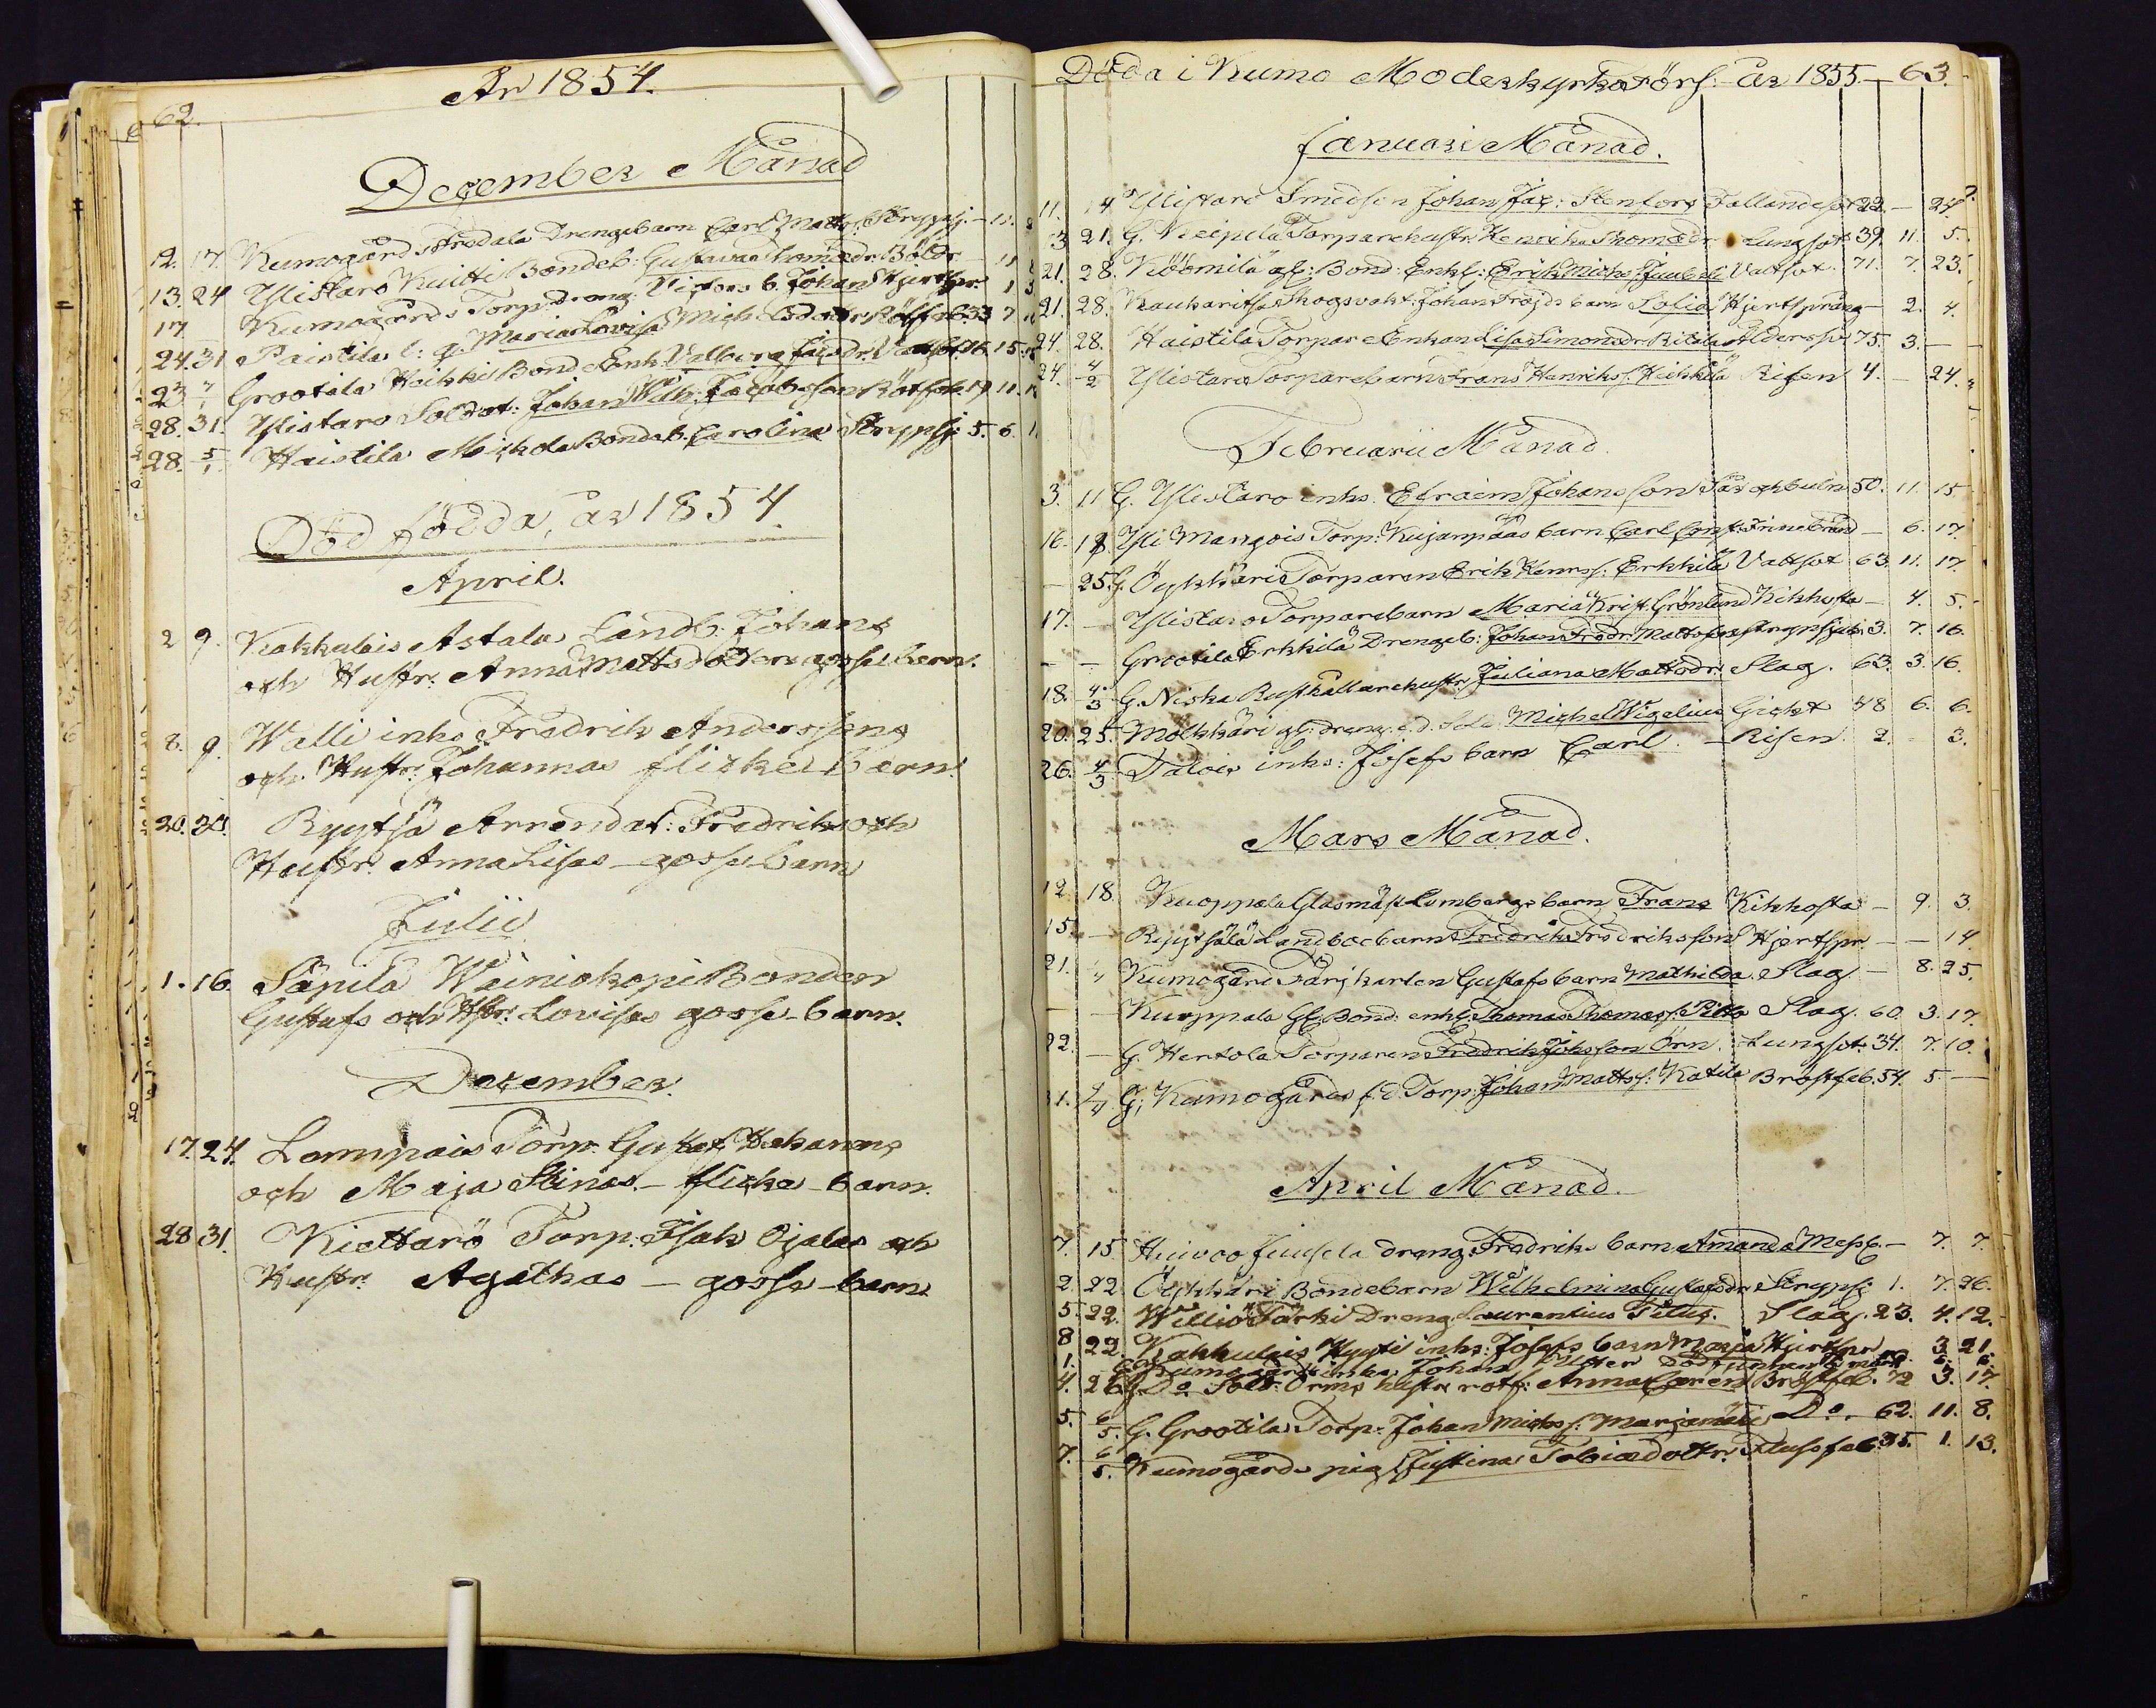 62.
År 1854.
December Månad
12. 17. Kumogård Fredala Drengebarn Carl Matts: Strypsj. — 11.
13. 24 Ylistaro Kuitti Bondeb: Gustava Thomædr Böldr — 11
17 Kumogårds Torp. dreng Victors b. Johan Hjertspr. 1 3
24. 31 Paistila Maria Lovisa Mich: dotter Rötfeb. 33 7
23 Grootila Heikki Bonde Enk. Valborg Vattsot 76. 15
28. 31. Ylistaro Soldat: Johan Wilh: Jacobsson Rötfeb. 19 11.
28. 5/1 Haistila Mickola Bondeb. Carolina Strypsj: 5. 6. 1.
Död födda, år 1854.
April.
2 9. Kakkulais Astala Landb. Johans
och Hustr: Anna Mattsdotters gosse barn.
8. 9. Walli inhs Fredrik Anderssons
och Hustr: Johannas flicke barn.
20. 30. Ryytsä Arrendat: Fredriks och
Hustr: Anna Lisas — gosse barn
Julii
1. 16. Säpilä Weiniokopi Bonden
Gustafs och Hstr: Lovisas gosse-barn.
December.
17. 24. Lammais Torp: Gustaf Hekanens
och Maja Stinas. — flicka-barn.
28 31. Kiettarö Torp. Isak Ojalas och
Hustr. Agathas — gosse-barn
Döda i Kumo Moderkyrko Förs: år 1855 — 63.
Januari Månad.
11. 14 Ylistaro Smedson Johan Jac: Stenfors Fallandesot 22. — 24.
3 21. G. Keipilä Torparehustr. Henrika Thomædr. Lungsot 39. 11. 5.
21. 28. Köömilä gl: Bond: Enkl: Erik Micks: Juubeli Vattsot. 71. 7. 23.
21. 28. Kauharitsa Skogsvakt. Johan Fröjds barn Sofia Hjertsprång — 2. 4.
24. 28. Haistila Torpare Enkan Lisa Simonsdr Rikala Ålderssv. 75. 3. —
24. 4/2 Ylistaro Torparebarn Frans Henriks: Heikkilä Risen 4. — 24.
Februarii Månad.
3. 11 G. Ylistaro inhs. Efraim Johansson Sår och buln 50. 11. 15
16. 18 Yli Mangois Torp: Kujanpääs barn Carl Const: Inne brand — 6. 17.
— 25. G. Öykkäri Torparen Erik Henrss: Erkkilä Vattsot 63. 11. 17.
17. — Ylistaro Torparebarn Maria Krist. Grönlund Kikhosta — 4. 5.
— — Grootila Erkkilä Drengeb: Johan Fredr: Mattsson Strypsjuk: 3. 7. 16.
18. 4/3 G. Niska Rusthållarehustr. Juliana Mattsdr: Slag. 63. 3. 16.
20. 25. Mölkkäri gl: dreng: f.d. Sold. Michel Wigelius Gickt 48 6. 6.
26. 4/3 Talois inhs: Josefs barn Carl. — Risen. 2. — 3.
Mars Månad.
12. 18. Kuoppala Glasmäst. Lembergs barn Frans Kikhosta — 9. 3.
15. — Ryytsälä Landboebarn Fredrik Fredriksson Hjertspr. — — 14
21. " Kumogård Färjkarlen Gustafs barn Mathilda. Slag — 8. 25.
— — Kuoppala Gl: Bond: enkl: Thomas Thomass: Pitko Slag. 60. 3. 17.
22. — G. Hertola Torparen Fredrik Johsson Örn. Lungsot. 34. 7. 10.
31. 9/4 G; Kumogårds f:d: Torp: Johan Matts: Katila Bröstfeb. 54. 5. —
April Månad.
7. 15. Huivoo Juusela dreng: Fredriks barn Amanda Messl. — 7. 7.
2. 22. Öykkäri Bondebarn Wilhelmina Gustafsdr Strypsj: 1. 7. 26.
5. 22. Williö Tärki Dreng. Laurentius Titus. Slag. 23. 4. 12.
8 22. Kakkulais Hyyti inhs: Josefs barn Maria Hjertspr — 3 21.
1. Kumogård inhs. Johan
4. 26. G. Do Sold: Orms hustr rotf: Anna Caren Bröstfeb. 72 3. 17.
5. 6/5. G. Grootila Torp: Johan Micks: Marjamäki Do. 62. 11. 8.
7. 6/5. Kumogårds pig. Justina Tobiædottr. Flussfeb: 35. 1. 13.